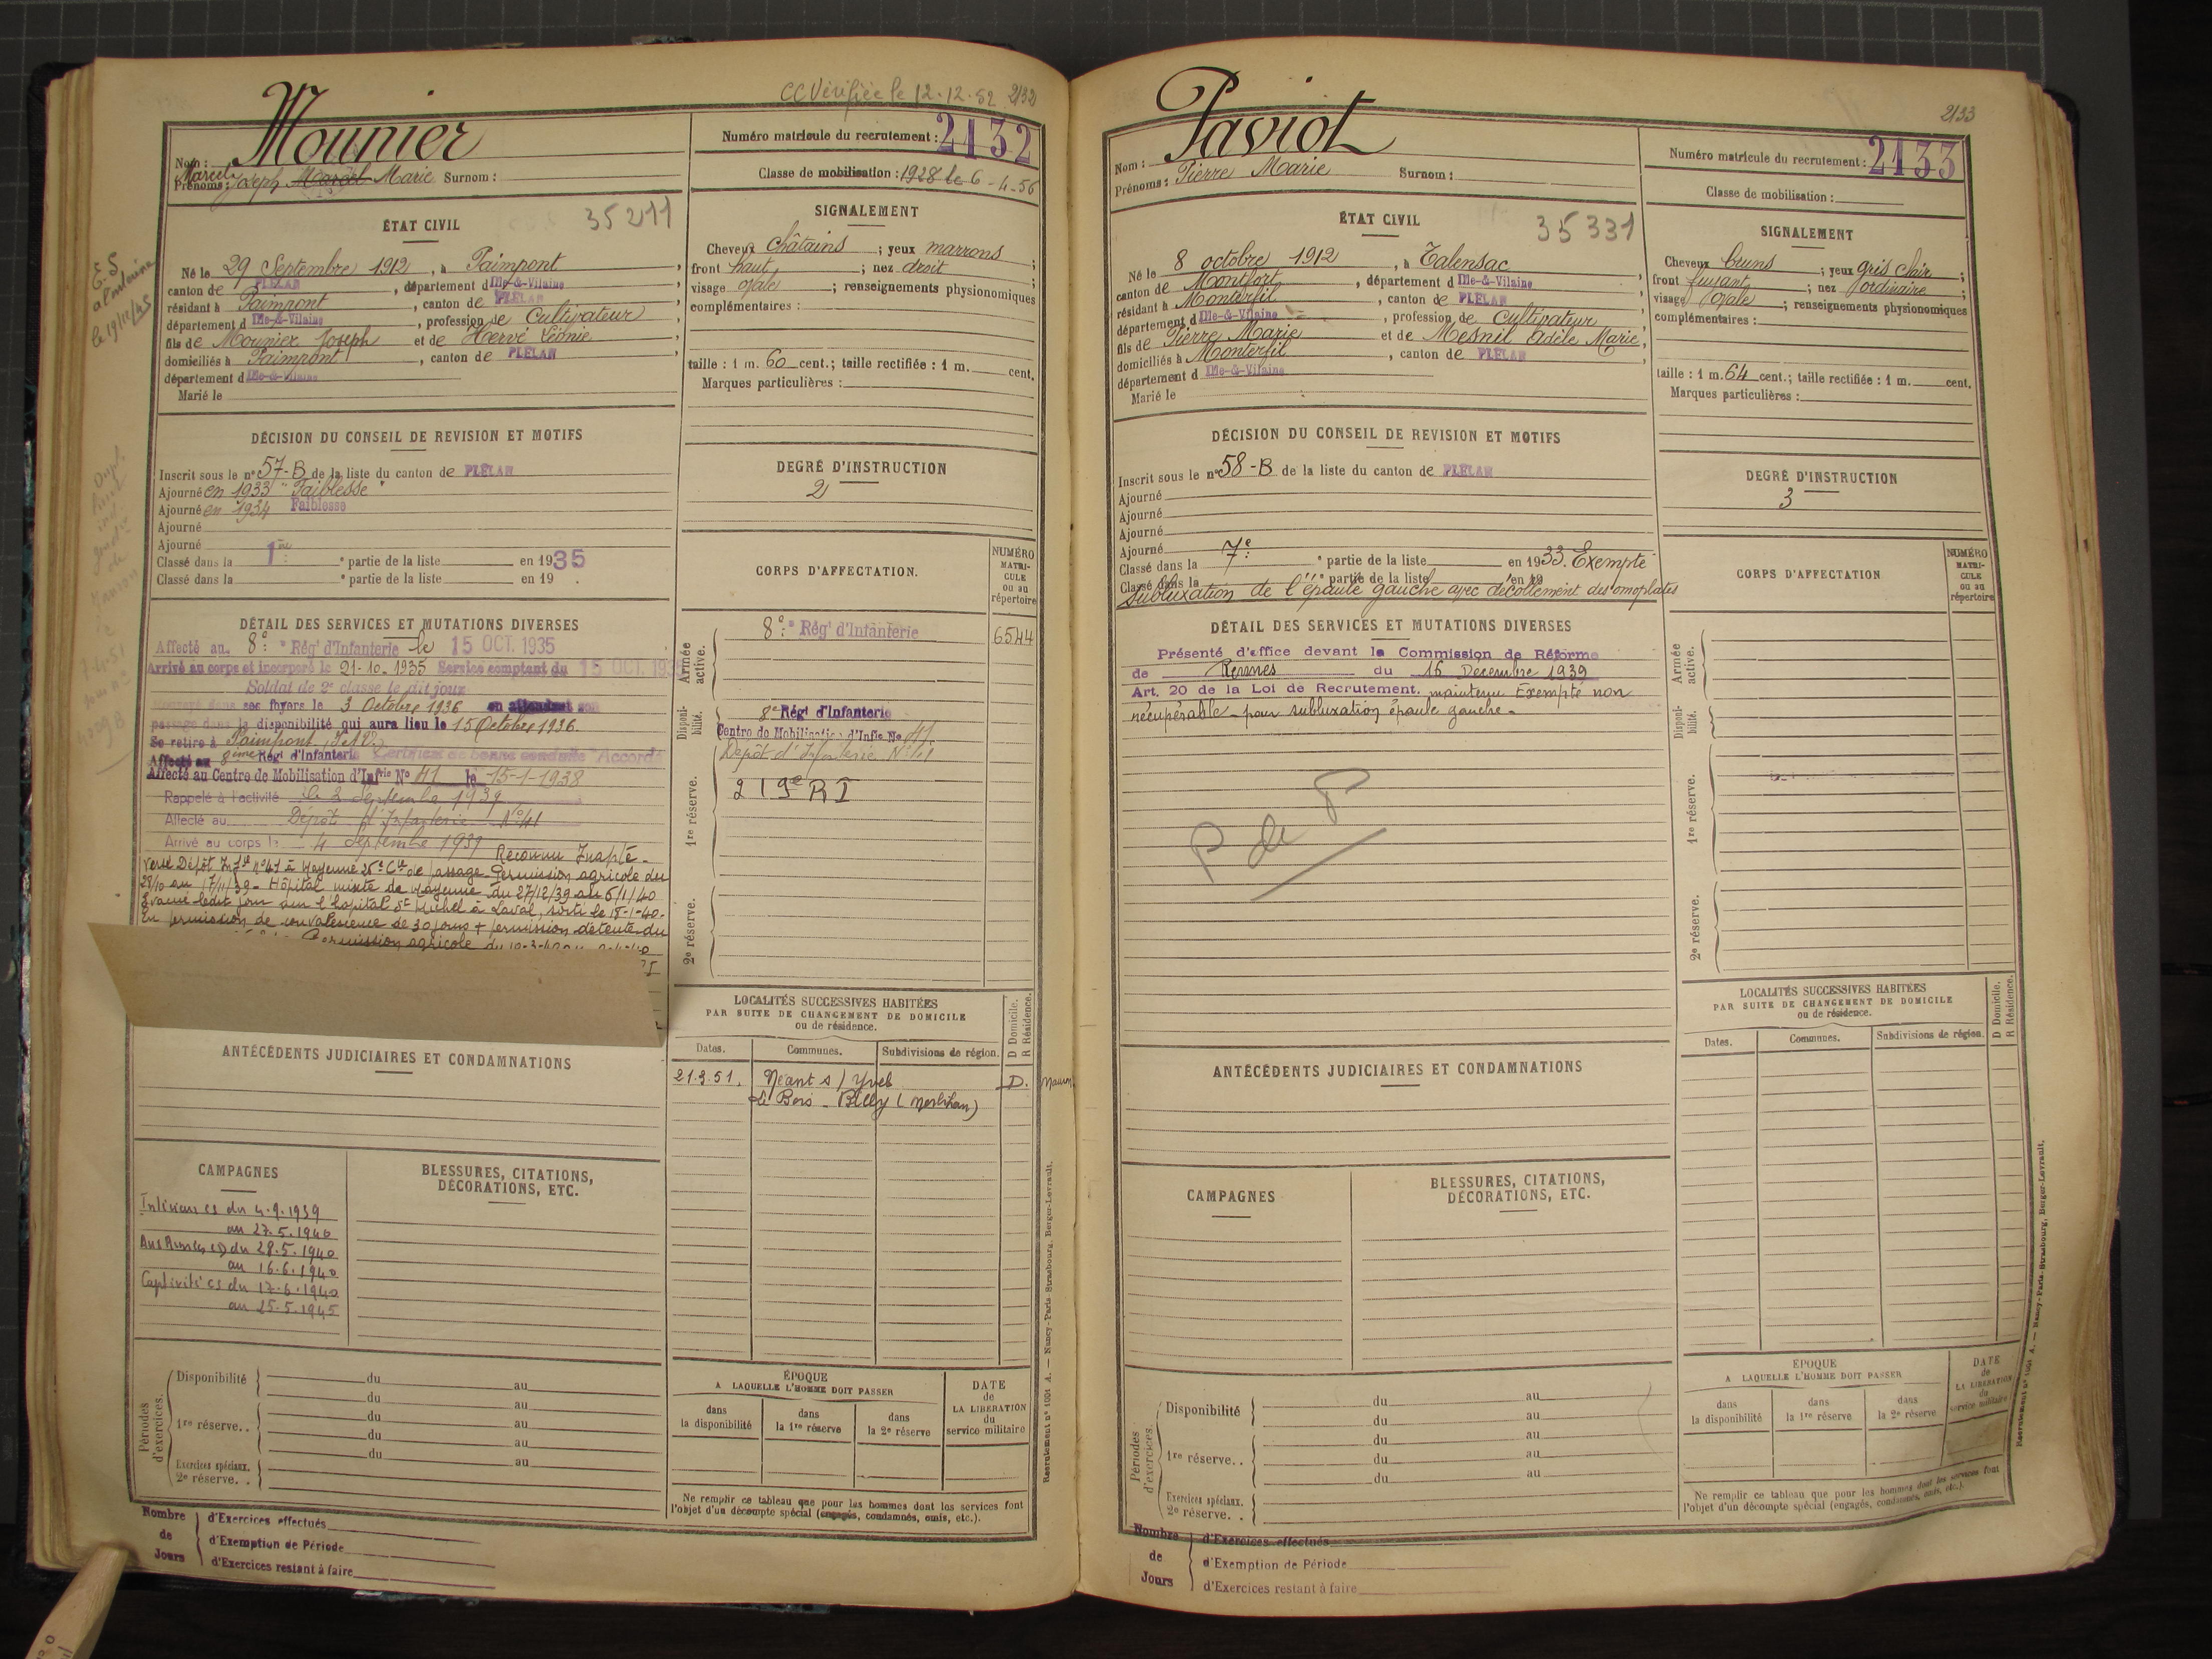 CC Vérifiée le 12.12.52 2132
Mounier
Nom :
Numéro matricule du recrutement : 2132
Marcel
Prénoms : Joseph Marcel Marie Surnom :
Classe de mobilisation : 1928 le 6-4-56
ÉTAT CIVIL
35211
Né le 29 Septembre 1912, à Paimpont,
canton de PLÉLAN, département d Ille-&-Vilaine
résidant à Paimpont, canton de PLÉLAN
département d Ille-&-Vilaine, profession de Cultivateur
fils de Mounier Joseph et de Hervé Léonie,
domiciliés à Paimpont, canton de PLÉLAN,
département d Ille-&-Vilaine
Marié le
SIGNALEMENT
Cheveux châtains ; yeux marrons ;
front haut ; nez droit ;
visage ovale ; renseignements physionomiques
complémentaires :
taille : 1 m. 60 cent.; taille rectifiée : 1 m. cent.
Marques particulières :
E.S
le 19/11/45
DÉCISION DU CONSEIL DE REVISION ET MOTIFS
Inscrit sous le n° 57-B de la liste du canton de PLÉLAN
Ajourné en 1933 "Faiblesse"
Ajourné en 1934 Faiblesse
Ajourné
Ajourné
Classé dans la 1re ° partie de la liste en 1935
Classé dans la ° partie de la liste en 19
DEGRÉ D'INSTRUCTION
2
CORPS D'AFFECTATION.
NUMÉRO
MATRI-
CULE
ou au
répertoire
Armée active.
8e Régt d'Infanterie 6544
Disponi-
bilité.
8e Régt d'Infanterie
Centre de Mobilisation d'Infie No 41
Dépôt d'Infanterie N°41
1re réserve.
219e RI
2e réserve.
DÉTAIL DES SERVICES ET MUTATIONS DIVERSES
Affecté au 8e Régt d'Infanterie le 15 OCT. 1935
Arrivé au corps et incorporé le 21-10-1935 Service comptant du 15 OCT. 1935
Soldat de 2e classe le dit jour
Renvoyé dans ses foyers le 3 Octobre 1936 en attendant son
passage dans la disponibilité qui aura lieu le 15 Octobre 1936.
Se retire à Paimpont, I&V.
Affecté au 8ème Régt d'Infanterie Certificat de bonne conduite "Accordé
Affecté au Centre de Mobilisation d'Infrie No 41 le 15-1-1938
Rappelé à l'activité le 3 Septembre 1939
Affecté au Dépôt d'Infanterie N°41
Arrivé au corps le 4 Septembre 1939 Reconnu Inapte -
versé Dépôt Infrie n°41 à Mayenne 26e Cie de passage. Permission agricole du
28/10 au 17/11/39 - Hôpital mixte de Mayenne du 27/12/39 au 6/1/40
Evacué ledit jour sur l'hôpital St Michel à Laval, sorti le 18-1-40.
En permission de convalescence de 30 jours + permission détente du
Permission agricole du 10-3-40 au
LOCALITÉS SUCCESSIVES HABITÉES
PAR SUITE DE CHANGEMENT DE DOMICILE
ou de résidence.
D Domicile.
R Résidence.
Dates. Communes. Subdivisions de région.
21.3.51. Néant s/ Yvel D. Mauron
Le Bois - Billy (Morbihan)
ANTÉCÉDENTS JUDICIAIRES ET CONDAMNATIONS
CAMPAGNES
Intérieur cs du 4.9.1939
au 27.5.1940
Aux Armées cD du 28.5.1940
au 16.6.1940
Captivité cs du 17.6.1940
au 25.5.1945
BLESSURES, CITATIONS,
DÉCORATIONS, ETC.
Périodes d'exercices.
Disponibilité du au
du au
1re réserve.. du au
du au
du au
Exercices spéciaux.
2e réserve. .
ÉPOQUE
A LAQUELLE L'HOMME DOIT PASSER
dans
la disponibilité
dans
la 1re réserve
dans
la 2e réserve
DATE
de
LA LIBÉRATION
du
service militaire
Ne remplir ce tableau que pour les hommes dont les services font
l'objet d'un décompte spécial (engagés, condamnés, omis, etc.).
Nombre
de
Jours
d'Exercices effectués
d'Exemption de Période
d'Exercices restant à faire
Recrutement n° 1001 A. — Nancy-Paris-Strasbourg, Berger-Levrault.
2133
Paviot
Nom :
Numéro matricule du recrutement : 2133
Prénoms : Pierre Marie Surnom :
Classe de mobilisation :
ÉTAT CIVIL
35331
Né le 8 octobre 1912, à Talensac,
canton de Montfort, département d Ille-&-Vilaine
résidant à Monterfil, canton de PLÉLAN
département d Ille-&-Vilaine, profession de Cultivateur
fils de Pierre Marie et de Mesnil Adèle Marie,
domiciliés à Monterfil, canton de PLÉLAN,
département d Ille-&-Vilaine
Marié le
SIGNALEMENT
Cheveux bruns ; yeux gris clair ;
front fuyant ; nez ordinaire ;
visage ovale ; renseignements physionomiques
complémentaires :
taille : 1 m. 64 cent.; taille rectifiée : 1 m. cent.
Marques particulières :
DÉCISION DU CONSEIL DE REVISION ET MOTIFS
Inscrit sous le n° 58-B de la liste du canton de PLÉLAN
Ajourné
Ajourné
Ajourné
Ajourné
Classé dans la 7e ° partie de la liste en 1933. Exempté
Classé dans la ° partie de la liste en 19
subluxation de l'épaule gauche avec décollement des omoplates
DEGRÉ D'INSTRUCTION
3
CORPS D'AFFECTATION
NUMÉRO
MATRI-
CULE
ou au
répertoire
Armée active.
Disponi-
bilité.
1re réserve.
2e réserve.
DÉTAIL DES SERVICES ET MUTATIONS DIVERSES
Présenté d'office devant la Commission de Réforme
de Rennes du 16 Décembre 1939
Art. 20 de la Loi de Recrutement. maintenu Exempté non
récupérable - pour subluxation épaule gauche -
P de P
LOCALITÉS SUCCESSIVES HABITÉES
PAR SUITE DE CHANGEMENT DE DOMICILE
ou de résidence.
D Domicile.
R Résidence.
Dates. Communes. Subdivisions de région.
ANTÉCÉDENTS JUDICIAIRES ET CONDAMNATIONS
CAMPAGNES
BLESSURES, CITATIONS,
DÉCORATIONS, ETC.
Périodes d'exercices.
Disponibilité du au
du au
1re réserve.. du au
du au
du au
Exercices spéciaux.
2e réserve. .
ÉPOQUE
A LAQUELLE L'HOMME DOIT PASSER
dans
la disponibilité
dans
la 1re réserve
dans
la 2e réserve
DATE
de
LA LIBÉRATION
du
service militaire
Ne remplir ce tableau que pour les hommes dont les services font
l'objet d'un décompte spécial (engagés, condamnés, omis, etc.).
Nombre
de
Jours
d'Exercices effectués
d'Exemption de Période
d'Exercices restant à faire
Recrutement n° 1001 A. — Nancy-Paris-Strasbourg, Berger-Levrault.